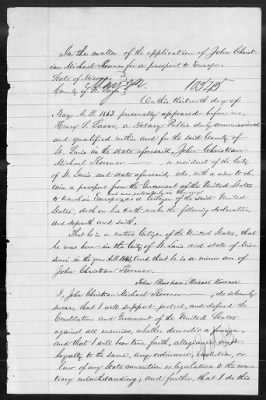 In the matter of the application of John Christ-
ian Michael Koerner for a passport to Europe
State of Missouri
County of St. Louis
10545
On this thirteenth day of
May A.D. 1863 personally appeared before me
Henry C. a Notary Public duly commissioned
and qualified within and for the said County of
St. Louis in the state aforesaid, John Christian
Michael Koerner a resident of the City
of St. Louis and state aforesaid, who with a view to ob-
tain a passport from the Government of the United States
to travel in Europe, as a Citizen of the said United
States, doth on his oath make the following declaration
and depose and saith,
That he is a native Citizen of the United States, that
he was born in the City of St. Louis and state of Mis-
souri in the year A.D. and that he is a minor son
of John Christian Koerner.
John Christian Michael Koerner
I, John Christian Michael Koerner do solemnly
swear, that I will support, protect, and defend the
Constitution and Government of the United States
against all enemies, whether domestic or foreign,
and that I will bear true faith, allegiance and
loyalty to the same, any ordinance, resolution, or
law of any State convention or legislature to the con-
trary notwithstanding; and further, that I do this